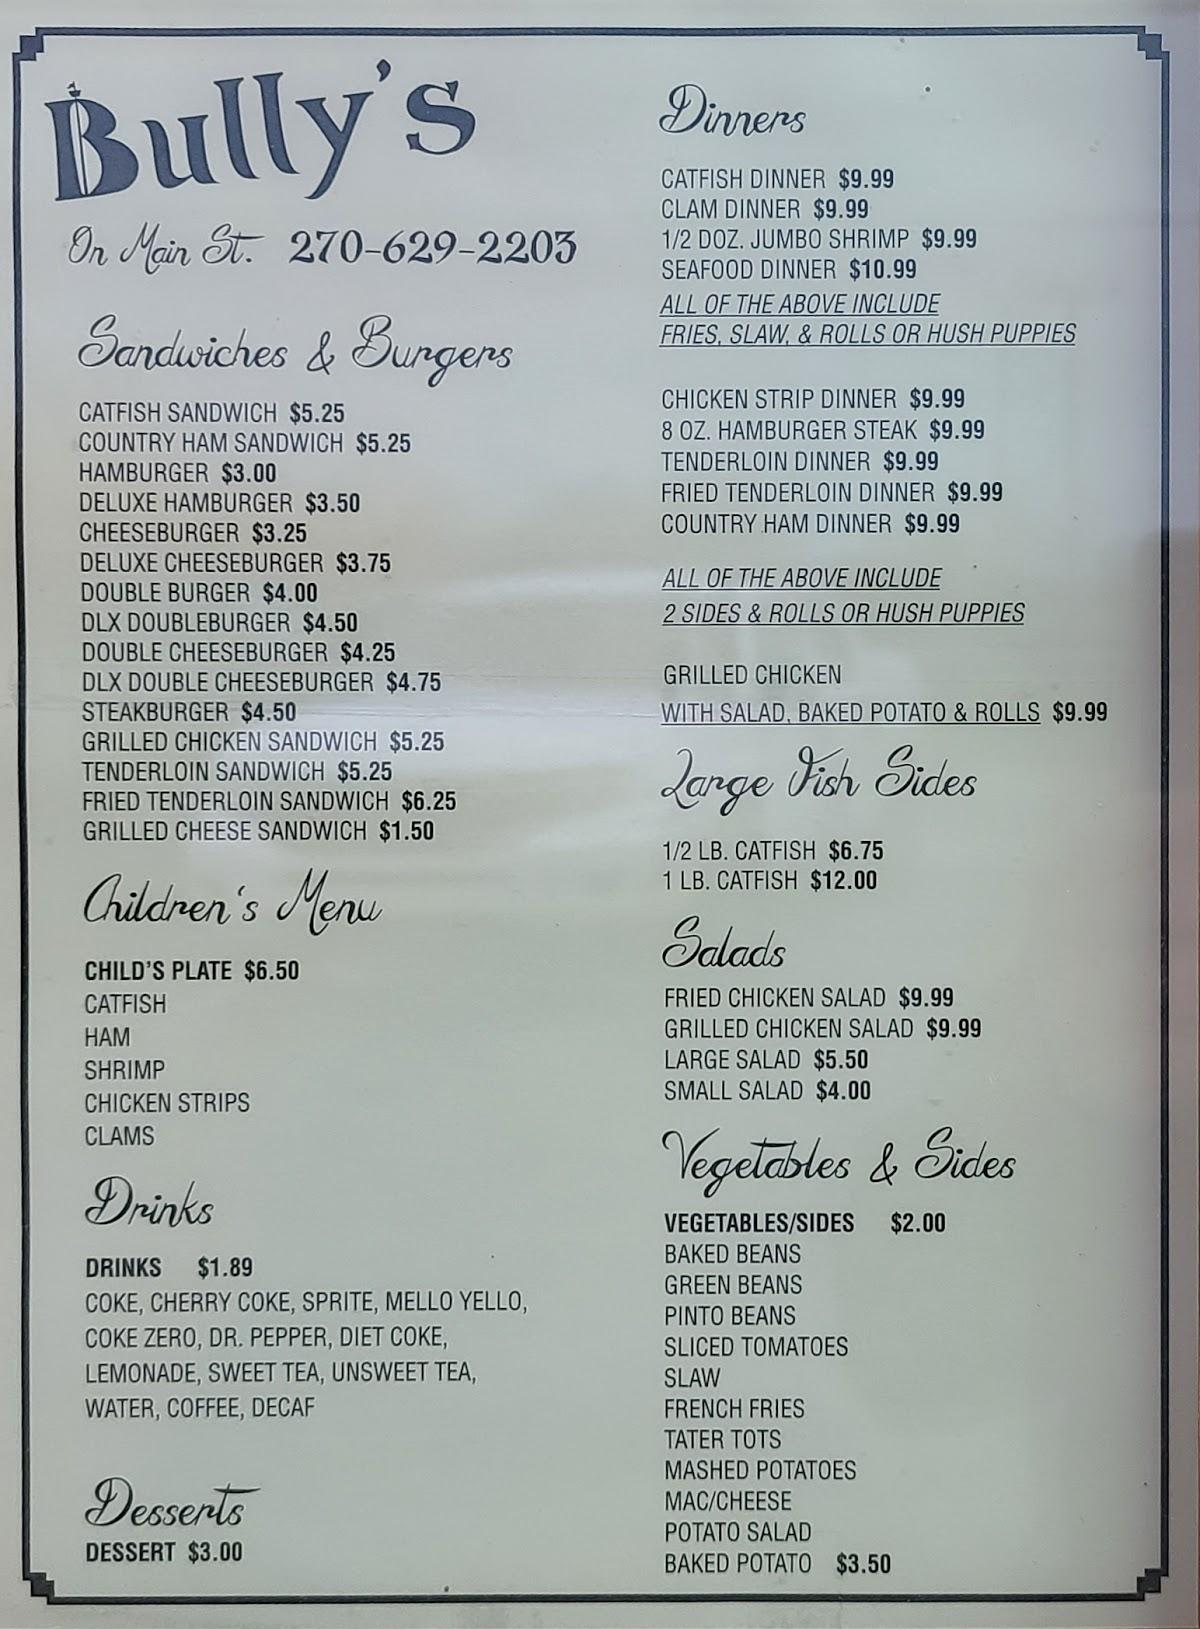 Bully's
On Main St. 270-629-2203
Sandwiches & Burgers
CATFISH SANDWICH $5.25
COUNTRY HAM SANDWICH $5.25
HAMBURGER $3.00
DELUXE HAMBURGER $3.50
CHEESEBURGER $3.25
DELUXE CHEESEBURGER $3.75
DOUBLE BURGER $4.00
DLX DOUBLEBURGER $4.50
DOUBLE CHEESEBURGER $4.25
DLX DOUBLE CHEESEBURGER $4.75
STEAKBURGER $4.50
GRILLED CHICKEN SANDWICH $5.25
TENDERLOIN SANDWICH $5.25
FRIED TENDERLOIN SANDWICH $6.25
GRILLED CHEESE SANDWICH $1.50
Children's Menu
CHILD'S PLATE $6.50
CATFISH
HAM
SHRIMP
CHICKEN STRIPS
CLAMS
Drinks
DRINKS $1.89
COKE, CHERRY COKE, SPRITE, MELLO YELLO,
COKE ZERO, DR. PEPPER, DIET COKE,
LEMONADE, SWEET TEA, UNSWEET TEA,
WATER, COFFEE, DECAF
Desserts
DESSERT $3.00
Dinners
CATFISH DINNER $9.99
CLAM DINNER $9.99
1/2 DOZ. JUMBO SHRIMP $9.99
SEAFOOD DINNER $10.99
ALL OF THE ABOVE INCLUDE
FRIES, SLAW, & ROLLS OR HUSH PUPPIES
CHICKEN STRIP DINNER $9.99
8 OZ. HAMBURGER STEAK $9.99
TENDERLOIN DINNER $9.99
FRIED TENDERLOIN DINNER $9.99
COUNTRY HAM DINNER $9.99
ALL OF THE ABOVE INCLUDE
2 SIDES & ROLLS OR HUSH PUPPIES
GRILLED CHICKEN
WITH SALAD, BAKED POTATO & ROLLS $9.99
Large Fish Sides
1/2 LB. CATFISH $6.75
1 LB. CATFISH $12.00
Salads
FRIED CHICKEN SALAD $9.99
GRILLED CHICKEN SALAD $9.99
LARGE SALAD $5.50
SMALL SALAD $4.00
Vegetables & Sides
VEGETABLES/SIDES $2.00
BAKED BEANS
GREEN BEANS
PINTO BEANS
SLICED TOMATOES
SLAW
FRENCH FRIES
TATER TOTS
MASHED POTATOES
MAC/CHEESE
POTATO SALAD
BAKED POTATO $3.50